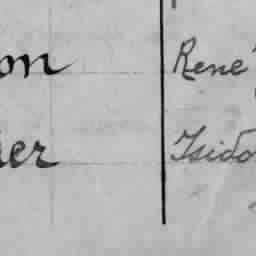 on René
er Isido